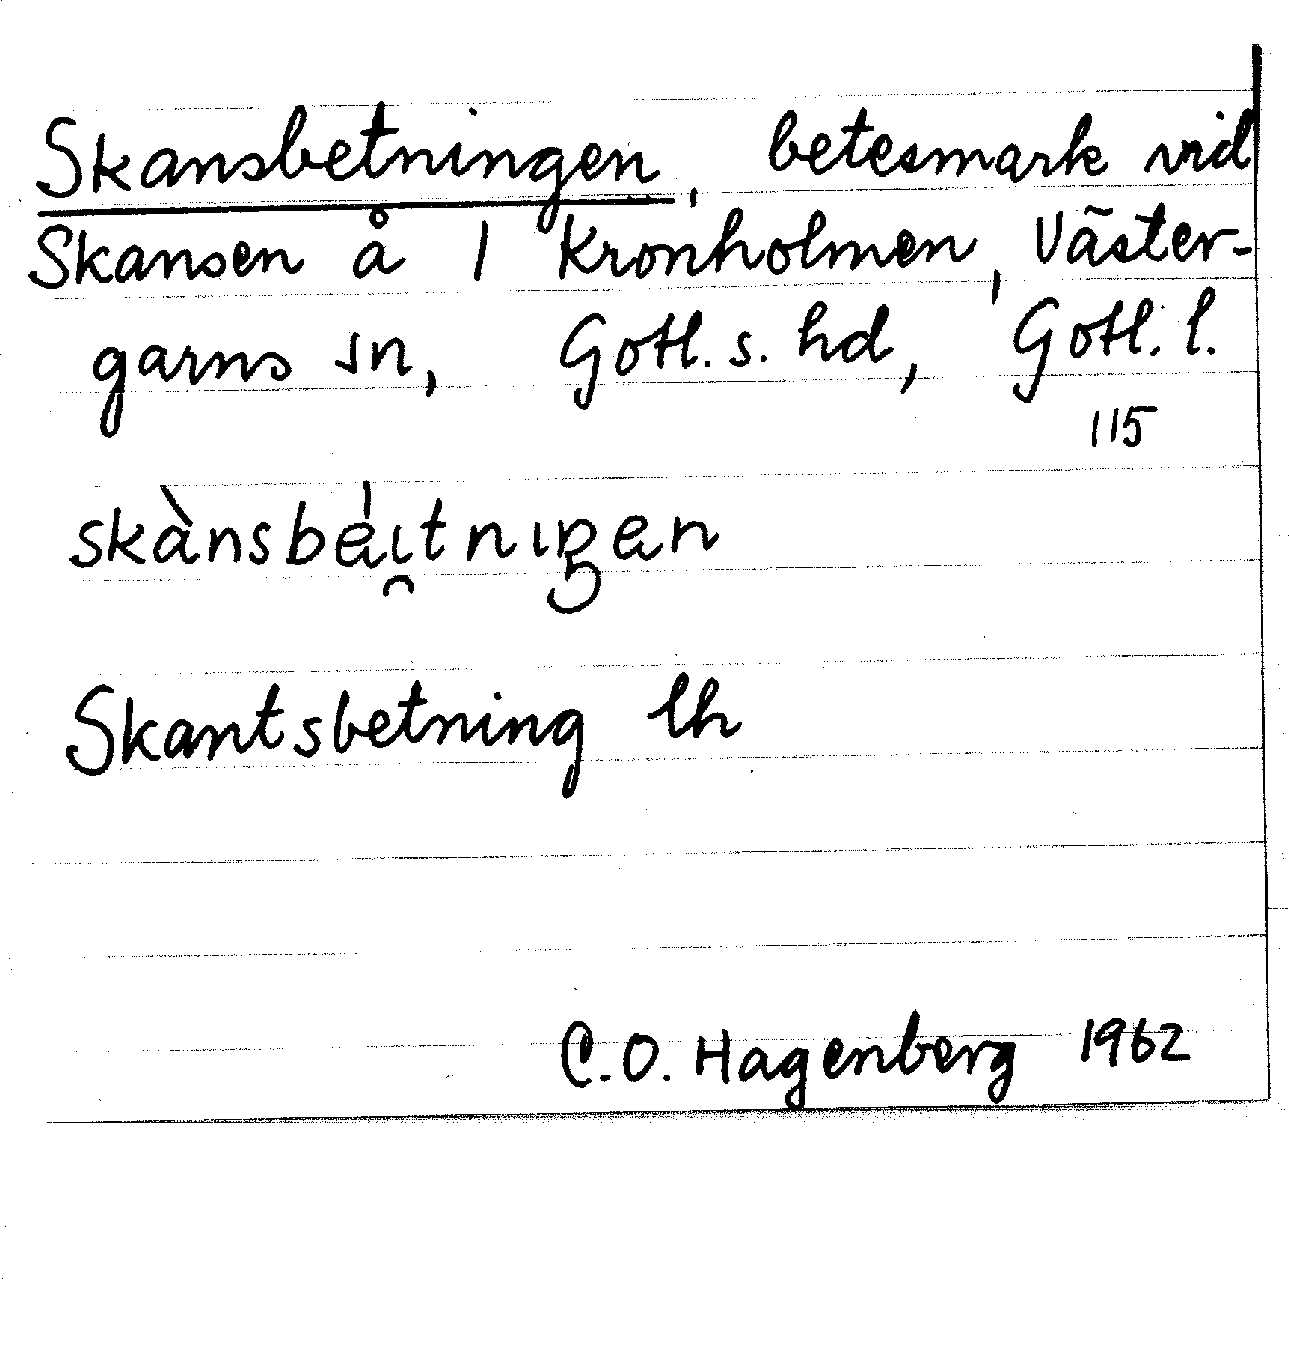 Skansbetningen, betesmark vid
Skansen å 1 Kronholmen, Väster-
garns sn, Gotl. s. hd, Gotl. l.
115
skànsbéi̯tnıŋen
Skantsbetning lh
C.O. Hagenberg 1962